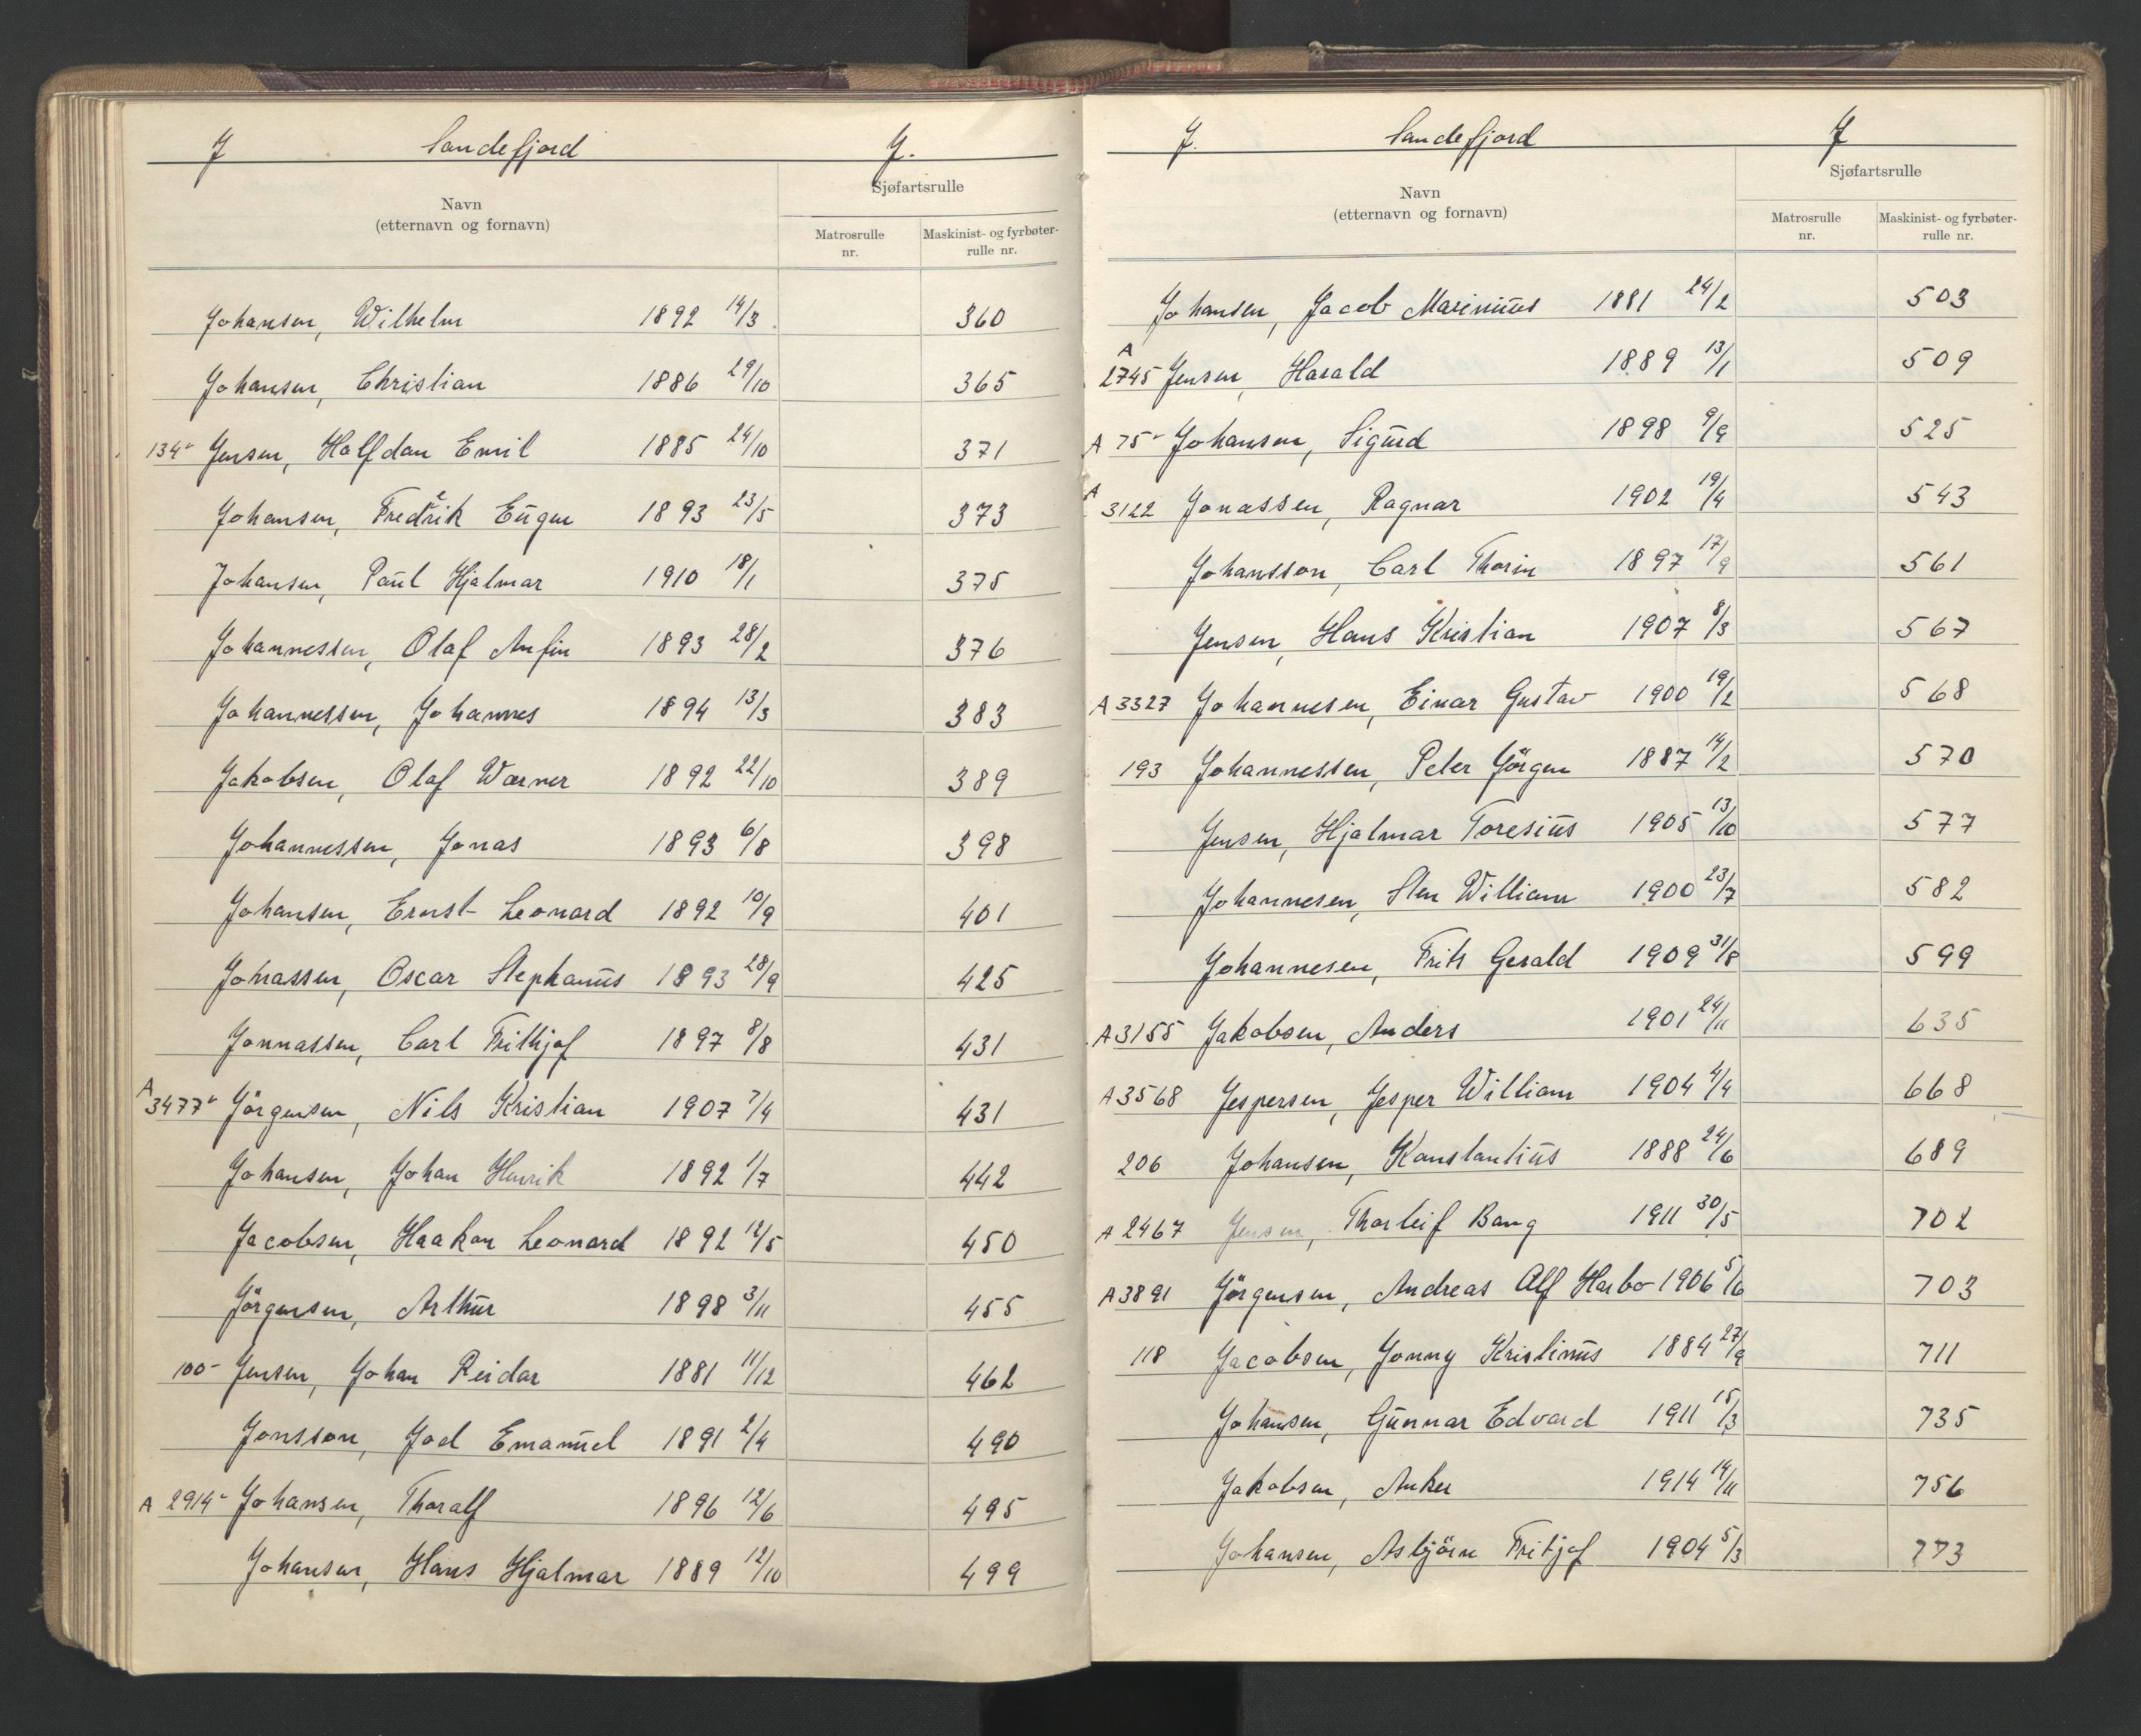 J Sandefjord J.
Navn
(etternavn og fornavn)
Sjøfartsrulle
Matrosrulle nr.
Maskinist- og fyrbøter-rulle nr.
Johansen, Wilhelm 1892 14/3 360
Johansen, Christian 1886 29/10 365
134 Jensen, Halfdan Emil 1885 24/10 371
Johansen, Fredrik Eugen 1893 23/5 373
Johansen, Paul Hjalmar 1910 18/1 375
Johannessen, Olaf Anfin 1893 28/2 376
Johannessen, Johannes 1894 13/3 383
Jakobsen, Olaf Warner 1892 22/10 389
Johannessen, Jonas 1893 6/8 398
Johansen, Ernst Leonard 1892 10/9 401
Johnassen, Oscar Stephanus 1893 28/9 425
Jonnassen, Carl Frithjof 1897 8/8 431
A 3477 Jörgensen, Nils Kristian 1907 7/4 431
Johansen, Johan Henrik 1892 1/7 442
Jacobsen, Haakon Leonard 1892 12/5 450
Jörgensen, Arthur 1898 3/11 455
100 Jensen, Johan Reidar 1881 11/12 462
Jonsson, Joel Emanuel 1891 2/4 490
A 2914 Johansen, Thoralf 1896 12/6 495
Johansen, Hans Hjalmar 1889 12/10 499
J. Sandefjord J
Navn
(etternavn og fornavn)
Sjøfartsrulle
Matrosrulle nr.
Maskinist- og fyrbøter-rulle nr.
Johansen, Jacob Marinius 1881 24/2 503
A 2745 Jensen, Harald 1889 13/1 509
A 75 Johansen, Sigurd 1898 9/9 525
A 3122 Jonassen, Ragnar 1902 19/4 543
Johansson, Carl Thorin 1897 17/9 561
Jensen, Hans Kristian 1907 8/3 567
A 3327 Johannesen, Einar Gustav 1900 19/2 568
193 Johannessen, Peter Jörgen 1887 14/2 570
Jensen, Hjalmar Toresius 1905 13/10 577
Johannesen, Sten William 1900 23/7 582
Johannesen, Frits Gerald 1909 31/8 599
A 3155 Jakobsen, Anders 1901 24/11 635
A 3568 Jespersen, Jesper William 1904 4/4 668
206 Johansen, Konstantius 1888 24/6 689
A 2467 Jensen, Thorleif Bang 1911 30/5 702
A 3891 Jörgensen, Andreas Alf Harbo 1906 703
118 Jacobsen, Jonny Kristinus 1884 27/9 711
Johansen, Gunnar Edvard 1911 15/3 735
Jakobsen, Anker 1914 14/11 756
Johansen, Asbjörn Fritjof 1904 5/3 773